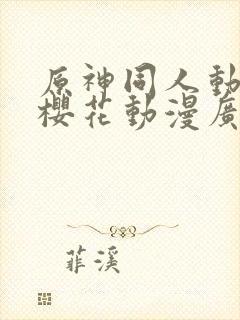 原神同人動
櫻花動漫廣
菲溪